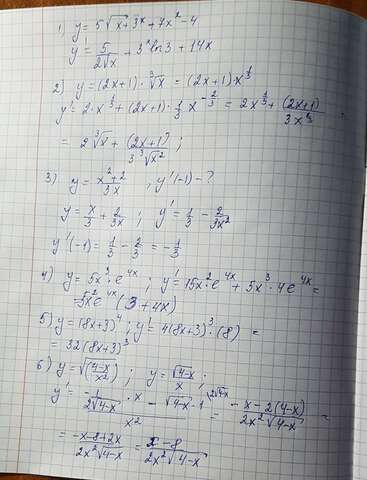 1) y = 5√x + 3ˣ + 7x² - 4
y' = 5/(2√x) + 3ˣ ln3 + 14x
2) y = (2x+1) · ∛x = (2x+1) · x^(1/3)
y' = 2 · x^(1/3) + (2x+1) · 1/3 x^(-2/3) = 2x^(1/3) + (2x+1)/(3x^(2/3)) =
= 2∛x + (2x+1)/(3∛x²) ;
3) y = (x²+2)/(3x) , y'(-1) - ?
y = x/3 + 2/(3x) ; y' = 1/3 - 2/(3x²)
y'(-1) = 1/3 - 2/3 = -1/3
4) y = 5x³ · e^(4x) ; y' = 15x² · e^(4x) + 5x³ · 4e^(4x) =
= 5x² e^(4x) (3 + 4x)
5) y = (8x+3)⁴ ; y' = 4(8x+3)³ · (8) =
= 32(8x+3)³
6) y = √((4-x)/x²) ; y = √(4-x)/x ;
y' = (-1/(2√(4-x)) · x - √(4-x) · 1)/x² = (-x - 2(4-x))/(2x²√(4-x)) =
= (-x-8+2x)/(2x²√(4-x)) = (x-8)/(2x²√(4-x))